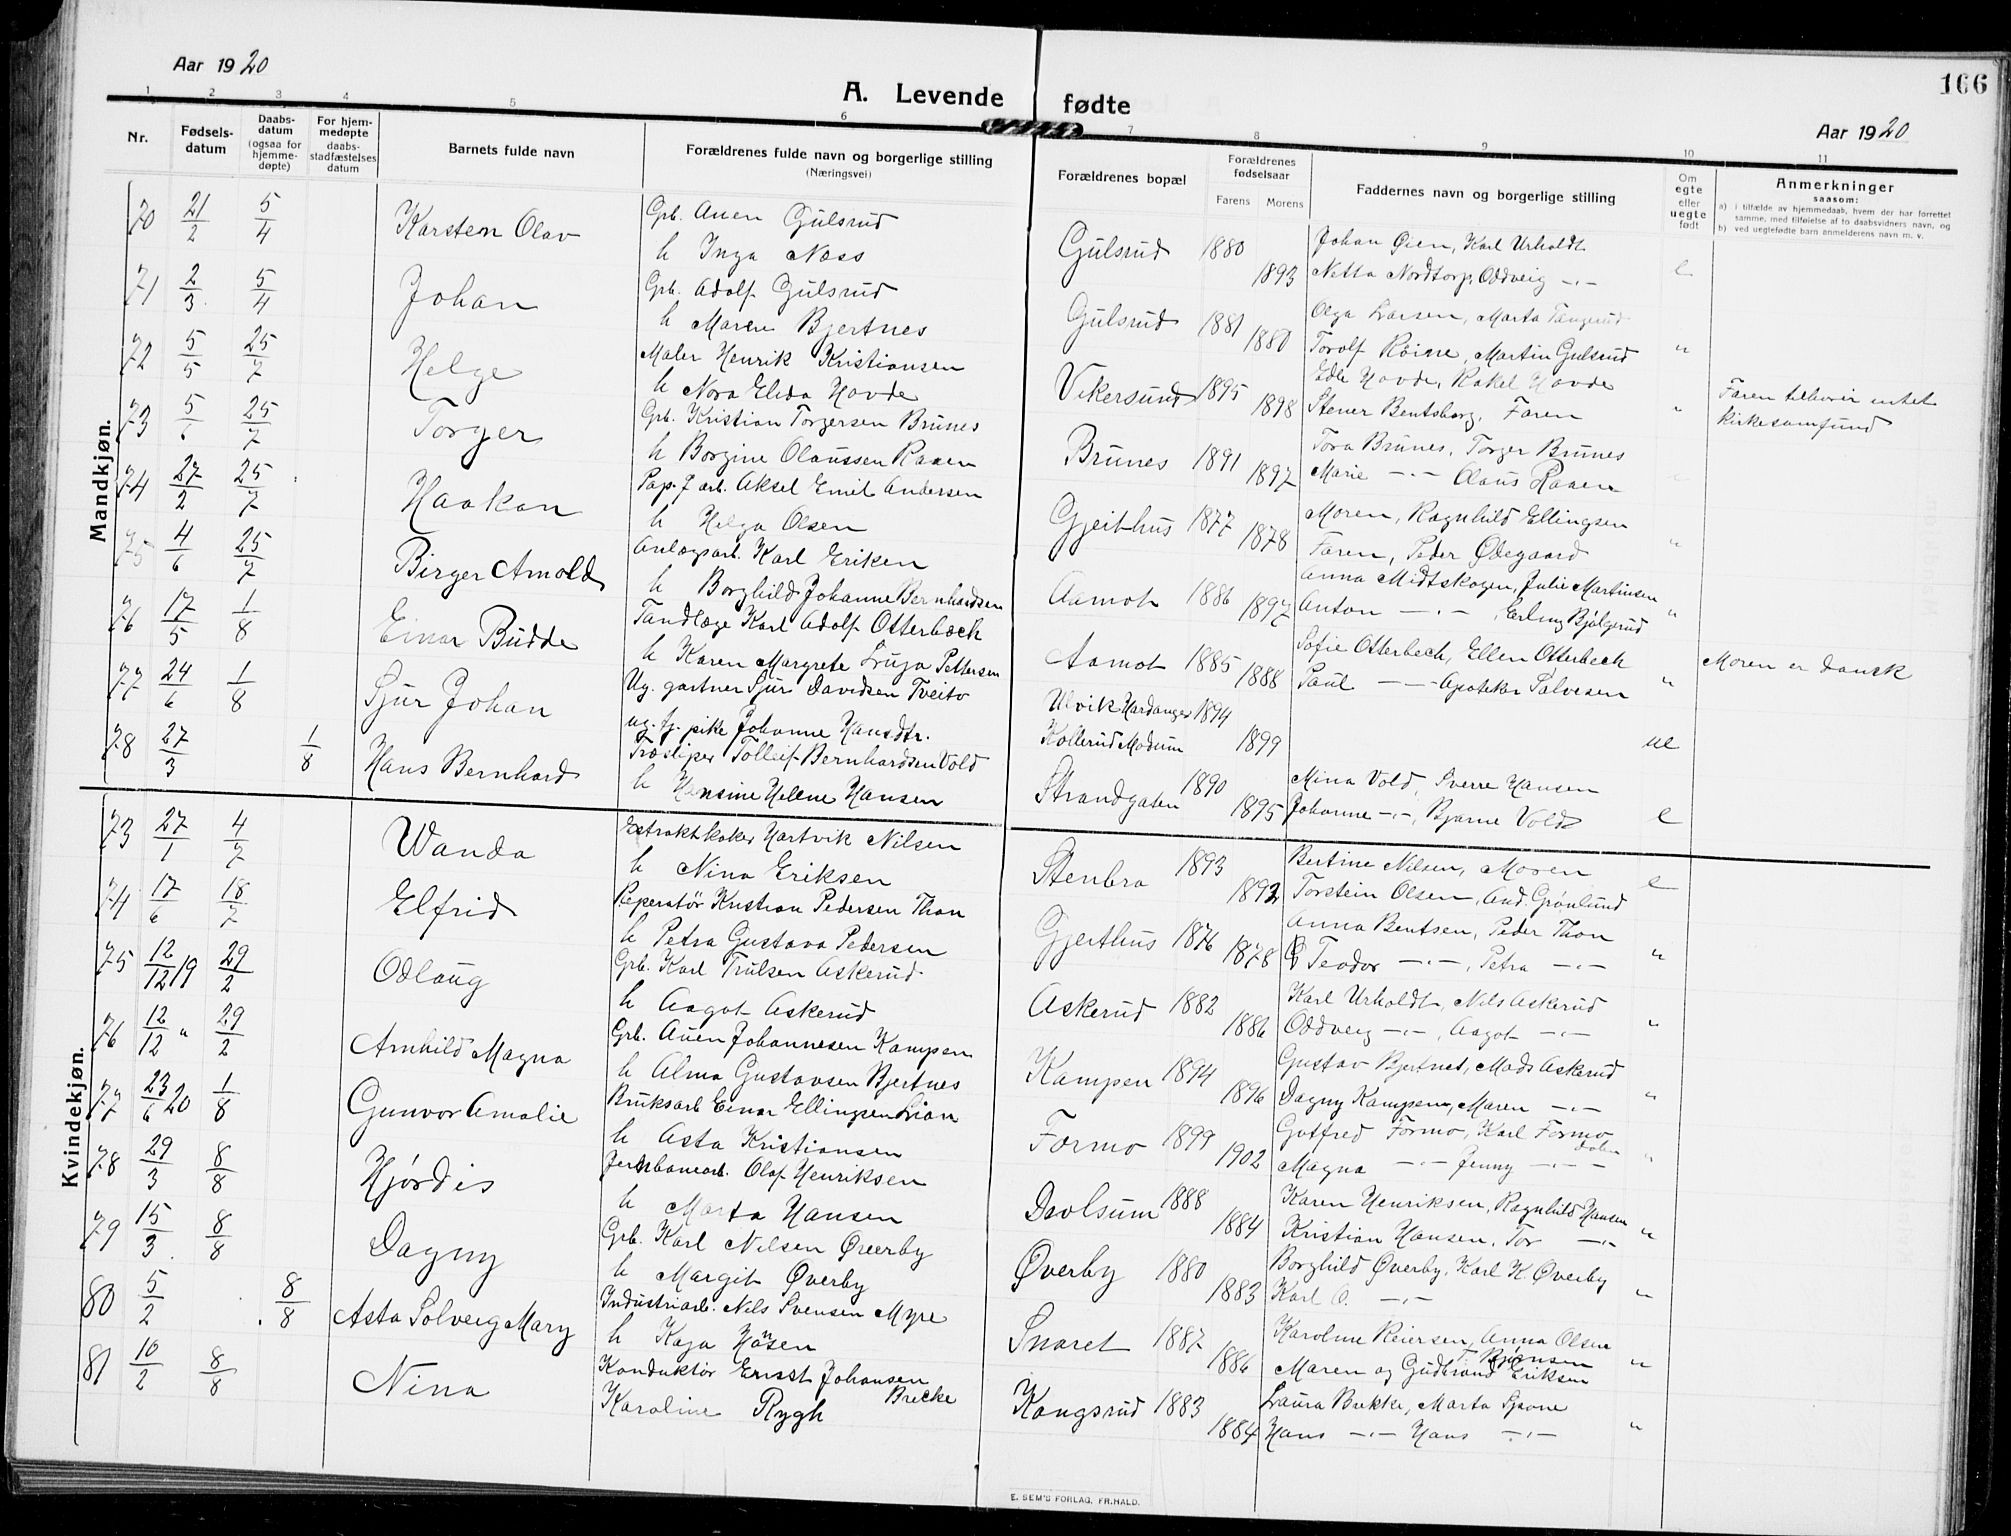 Aar 1920
A. Levende fødte
166
Aar 1920
1 2 3 4 5 6 7 8 9 10 11
Nr.
Fødsels-
datum
Daabs-
datum
(ogsaa for
hjemme-
døpte)
For hjem-
medøpte
daabs-
stadfæstelses
datum
Barnets fulde navn
Forældrenes fulde navn og borgerlige stilling
(Næringsvei)
Forældrenes bopæl
Forældrenes
fødselsaar
Farens Morens
Faddernes navn og borgerlige stilling
Om
egte
eller
uegte
født
Anmerkninger
saasom:
a) i tilfælde av hjemmedaab, hvem der har forrettet
samme, med tilføielse af to daabsvidners navn, og
b) ved uegtefødte barn anmelderens navn m. v.
Mandkjøn.
70 21/2 5/4 Karsten Olav Grb. Auen Gulsrud Gulsrud 1880 Johan Øien, Karl Urholdt
h Inga Næss 1893 Netta Nordtorp, Oddveig -"- e
71 2/3 5/4 Johan Grb. Adolf Gulsrud Gulsrud 1881 Olga Larsen, Marta Tangerud
h Maren Bjertnes 1880 Torolf Røine, Martin Gulsrud "
72 5/5 25/7 Helge Maler Henrik Kristiansen Vikersund 1895 Edle Hovde, Rakel Hovde
h Nora Elida Hovde 1898 Stener Bentsborg, Faren " Faren tilhører intet
kirkesamfund
73 5/6 25/7 Torger Grb. Kristian Torgersen Brunes Brunes 1891 Tora Brunes, Torger Brunes
h Borgine Olaussen Raaen 1897 Marie -"- Olaus Raaen
74 27/2 25/7 Haakon Pap.f arb. Aksel Emil Andersen Gjeithus 1877 Moren, Ragnhild Ellingsen
h Helga Olsen 1878 Faren, Peder Ødegaard "
75 4/6 25/7 Birger Arnold Anlægsarb. Karl Eriken Aamot 1886 Anna Midtskogen, Julie Martinsen
h Borghild Johanne Bernhardsen 1897 Anton -"- , Erling Bjølgerud "
76 17/5 1/8 Einar Budde Tandlæge Karl Adolf Otterbech Aamot 1885 Sofie Otterbech, Ellen Otterbech
h Karen Margrete Luja Pettersen 1888 Paul -"- Apoteker Salvesen " Moren er dansk
77 24/6 1/8 Sjur Johan Ug. gartner Sjur Davidsen Tveito Ulvik Hardanger 1894
ug. tj. pike Johanne Hansdtr. Kollerud Modum 1899 ue
78 27/3 1/8 Hans Bernhard Træsliper Tolleif Bernhardsen Vold Strandgaten 1890 Mina Vold, Sverre Hansen
h Hansine Helene Hansen 1895 Johanne -"-, Bjarne Vold e
Kvindekjøn.
73 27/1 4/7 Wanda Extraktkoker Hartvik Nilsen Stenbra 1893 Bertine Nilsen, Moren
h Nina Eriksen 1892 Torstein Olsen, And. Grønlund e
74 17/6 18/7 Elfrid Reperatør Kristian Pedersen Thon Gjerthus 1876 Anna Bentsen, Peder Thon
h Petra Gustava Pedersen 1878 Teodor -"-, Petra -"- "
75 12/12 19 29/2 Odlaug Grb. Karl Trulsen Askerud Askerud 1882 Karl Urholdt, Nils Askerud
h Aagot Askerud 1886 Oddveig -"-, Aagot -"- "
76 12/12 " 29/2 Arnhild Magna Grb. Auen Johannesen Kampen Kampen 1894 Gustav Bjertnes, Mads Askerud
h Alma Gustavsen Bjertnes 1896 Dagny Kampen, Maren -"- "
77 23/6 20 1/8 Gunvor Amalie Bruksarb Einar Ellingsen Lian Formo 1899 Gotfred Formo, Karl Formo
h Asta Kristiansen 1902 Magna -"- Jenny -"- "
78 29/3 8/8 Hjørdis Jernbanearb. Olaf Henriksen Davlsum 1888 Karen Henriksen, Ragnhild Hansen
h Marta Hansen 1884 Kristian Hansen, Tor -"- "
79 15/3 8/8 Dagny Grb. Karl Nilsen Øverby Øverby 1880 Borghild Øverby, Karl K. Øverby
h Margit Øverby 1883 Karl O. -"- "
80 5/2 8/8 Asta Solveig Mary Industriarb. Nils Svensen Myre Snaret 1887 Karoline Reiersen, Anna Olsen
h Kaja Hansen 1886 Maren og Gudbrand Eriksen "
81 10/2 8/8 Nina Konduktør Ernst Johansen Brecke Kongsrud 1883 Laura Brekke, Marta Sjaone
Karoline Rygh 1884 Hans -"- Hans -"- "
E. SEM'S FORLAG, FR.HALD.